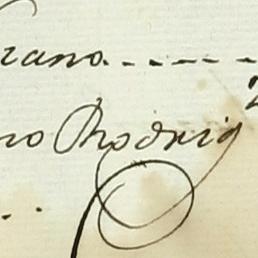 rano.------
no Rodrig